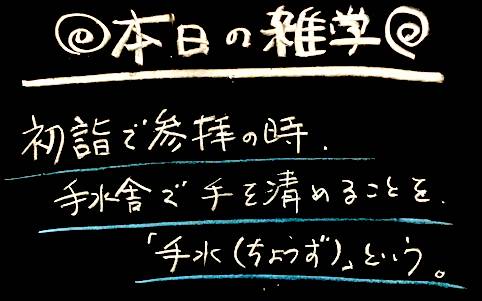 本日の雑学
初詣で参拝の時、
手水舎で手を清めることを、
「手水(ちょうず)」という。